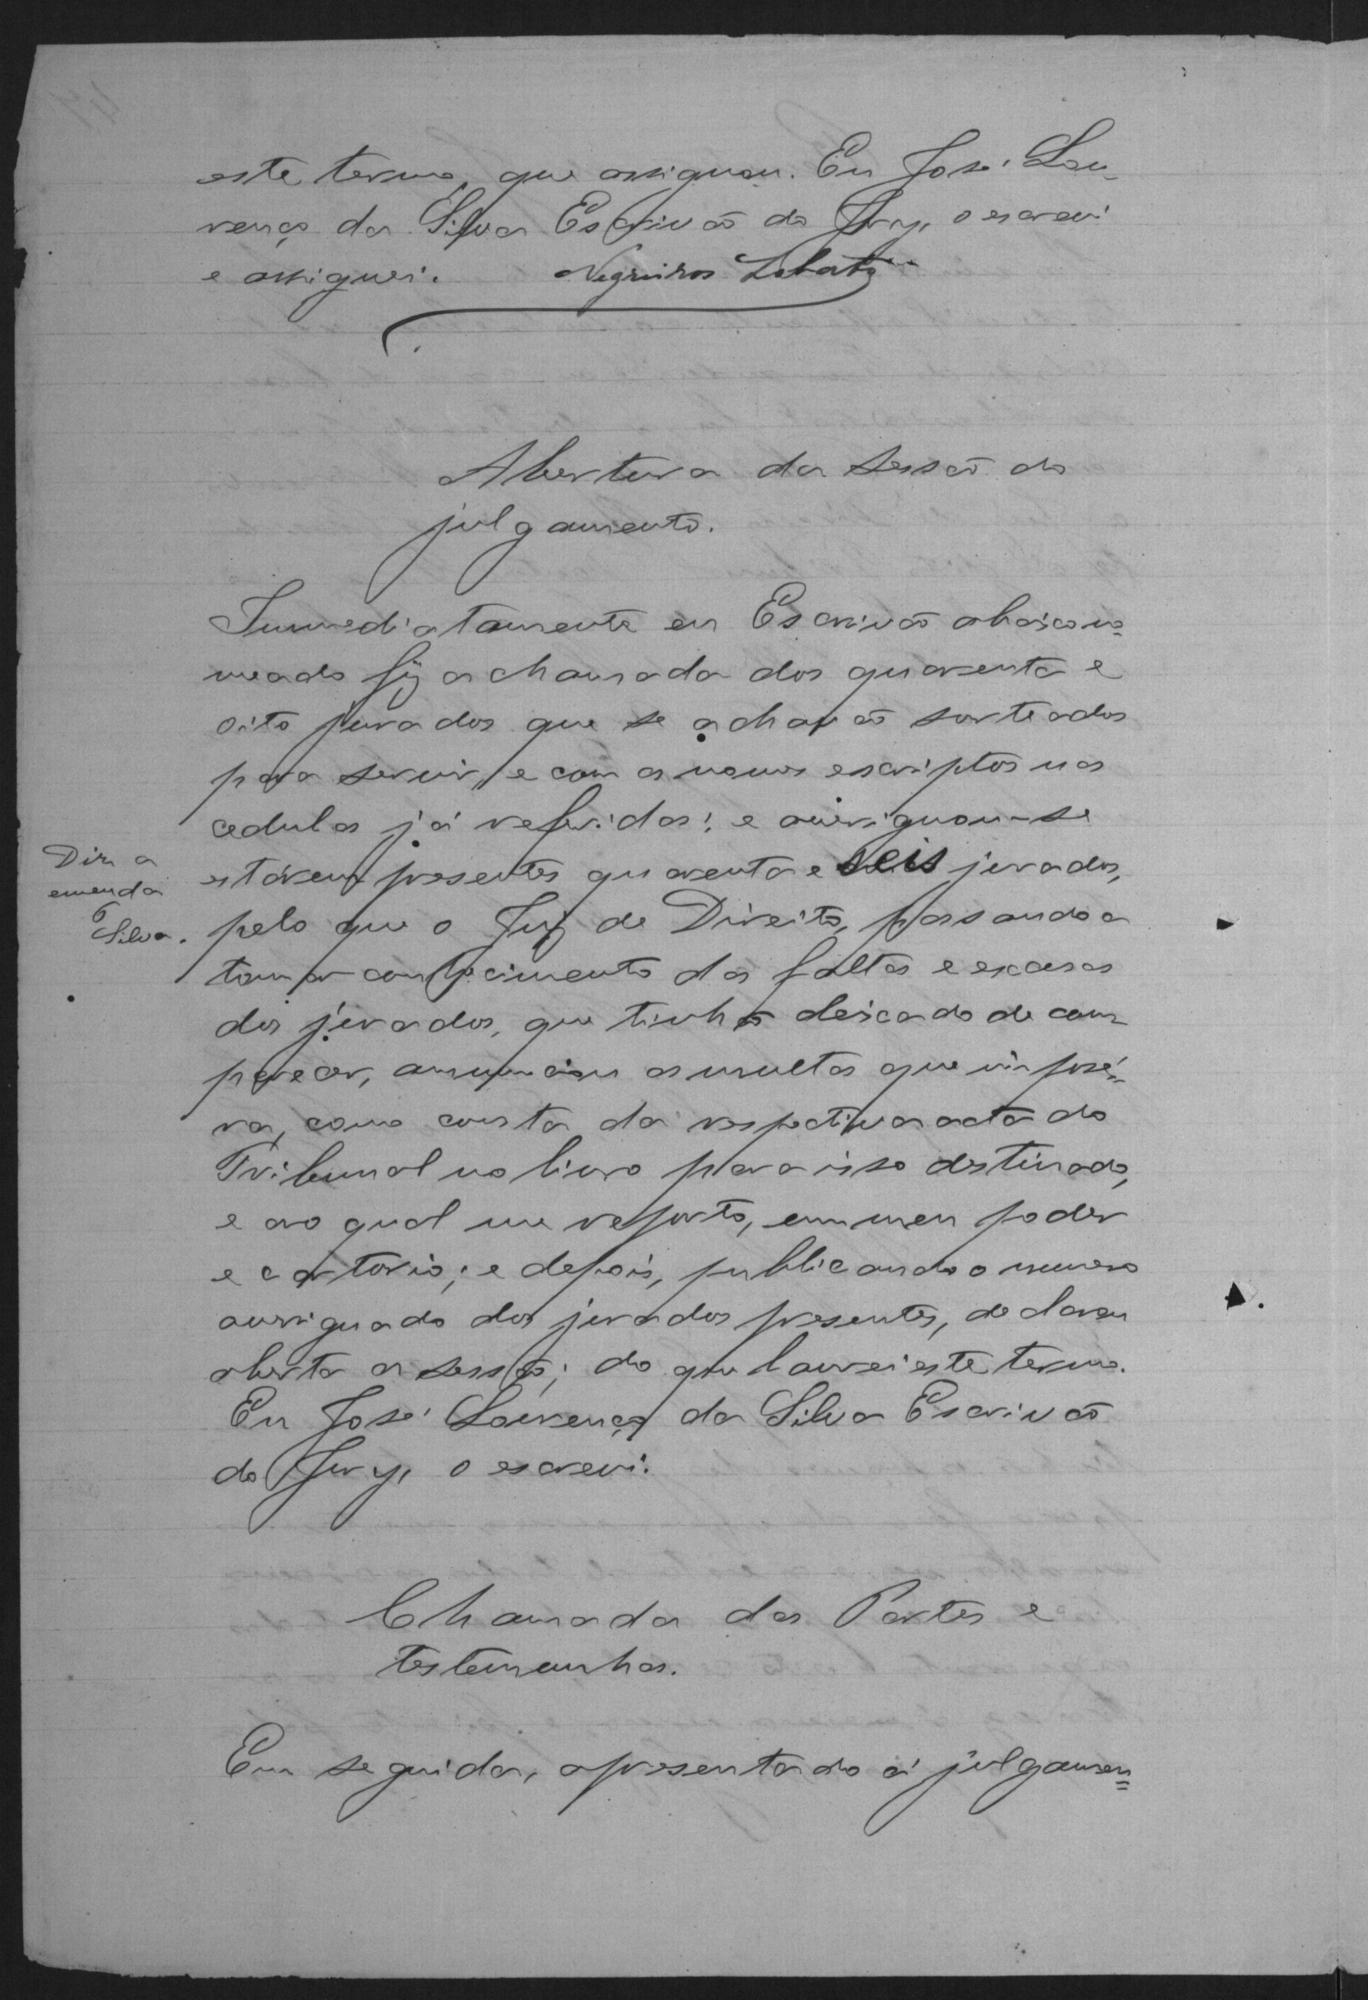 este termo, que assignou. Eu José Lou-
renço da Silva Escrivão do Jury, o escrevi
e assignei. Negreiros Lobato
Abertura da sessão do
julgamento.
Immediatamente eu Escrivão abaixo no=
meado fiz a chamada dos quarenta e
oito jurados que se achavão sorteados
para servir, e com os nomes escriptos nas
cedulas já referidas; e averiguou-se
estárem presentes quarenta e seis jurados,
pelo que o Juiz de Direito, passando a
tomar conhecimento das faltas e escusas
dos jurados, que tinhão deixado de com-
parecer, annunciou as multas que impoze=
ra, como consta da respectiva acta do
Tribunal no livro para isso destinado,
e ao qual me reporto, em meu poder
e cartorio; e depois, publicando o numero
averiguado dos jurados presentes, declarou
aberta a sessão; do que lavrei este termo.
Eu José Lourenço da Silva Escrivão
do Jury, o escrevi.
Diz a
emenda
6
Silva.
Chamada das Partes e
testemunhas.
Em seguida, apresentado á julgamen=